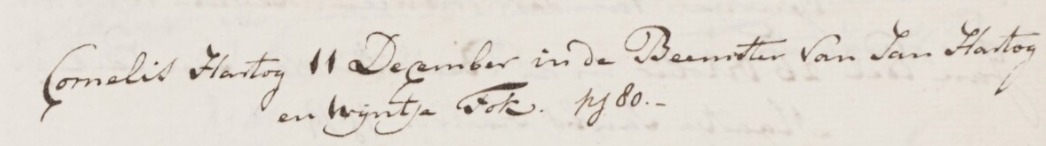 Cornelis Hartog 11 December in de Beemster van Jan Hartog
en Wijntje Fok. pg 80.-